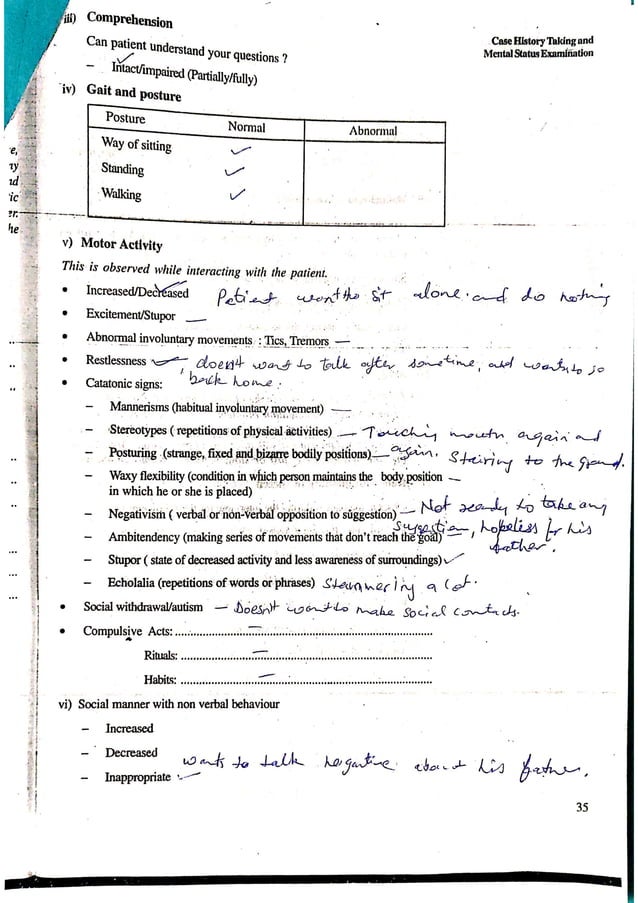 iii) Comprehension
Case History Taking and
Mental Status Examination
Can patient understand your questions ?
– Intact/impaired (Partially/fully)
iv) Gait and posture
Posture Normal Abnormal
Way of sitting ✓
Standing ✓
Walking ✓
v) Motor Activity
This is observed while interacting with the patient.
• Increased/Decreased Patient want to sit alone and do nothing
• Excitement/Stupor —
• Abnormal involuntary movements : Tics, Tremors —
• Restlessness ✓, doesn't want to talk after sometime, and wants to go
back home.
• Catatonic signs:
– Mannerisms (habitual involuntary movement) —
– Stereotypes ( repetitions of physical activities) — Touching mouth again and
again.
– Posturing (strange, fixed and bizarre bodily positions) — Stairing to the ground.
– Waxy flexibility (condition in which person maintains the body position —
in which he or she is placed)
– Negativism ( verbal or non-verbal opposition to suggestion) — Not ready to take any
suggestion, hopeless for his
father.
– Ambitendency (making series of movements that don't reach the goal) —
– Stupor ( state of decreased activity and less awareness of surroundings) ✓
– Echolalia (repetitions of words or phrases) Stammering a lot.
• Social withdrawal/autism — Doesn't want to make social contacts.
• Compulsive Acts: —
Rituals: —
Habits: —
vi) Social manner with non verbal behaviour
– Increased
– Decreased
wants to talk negative about his father.
– Inappropriate ✓
35